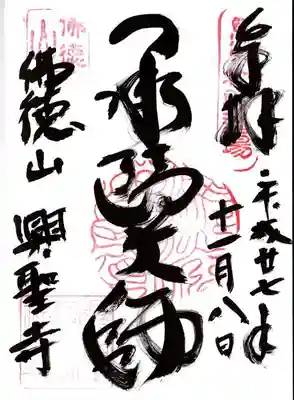 奉拝
平成廿七年
十一月八日
承陽大師
佛徳山 興聖寺
佛徳山